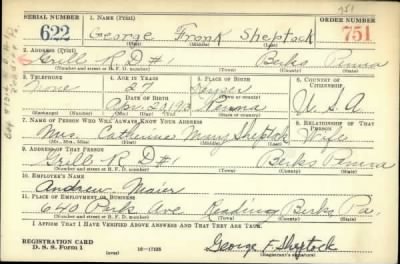 751
SERIAL NUMBER 1. NAME (Print) ORDER NUMBER
622 George Frank Sheptock 751
2. ADDRESS (Print)
Grill R D #1 Berks Penna
(Number and street or R. F. D. number) (Town) (County) (State)
3. TELEPHONE 4. AGE IN YEARS 5. PLACE OF BIRTH 6. COUNTRY OF CITIZENSHIP
None 27
DATE OF BIRTH
Penna U. S. A.
7. NAME OF PERSON WHO WILL ALWAYS KNOW YOUR ADDRESS 8. RELATIONSHIP OF THAT PERSON
Mrs. Catherine Mary Sheptock Wife
(Mr., Mrs., Miss) (First) (Middle) (Last)
9. ADDRESS OF THAT PERSON
Grill R D #1 Berks Penna
(Number and street or R. F. D. number) (Town) (County) (State)
10. EMPLOYER'S NAME
Andrew Maier
11. PLACE OF EMPLOYMENT OR BUSINESS
640 Park Ave Reading Berks Pa.
(Number and street or R. F. D. number) (Town) (County) (State)
I AFFIRM THAT I HAVE VERIFIED ABOVE ANSWERS AND THAT THEY ARE TRUE.
REGISTRATION CARD
D. S. S. FORM 1 (over) 16-17105 George F. Sheptock
(Registrant's signature)